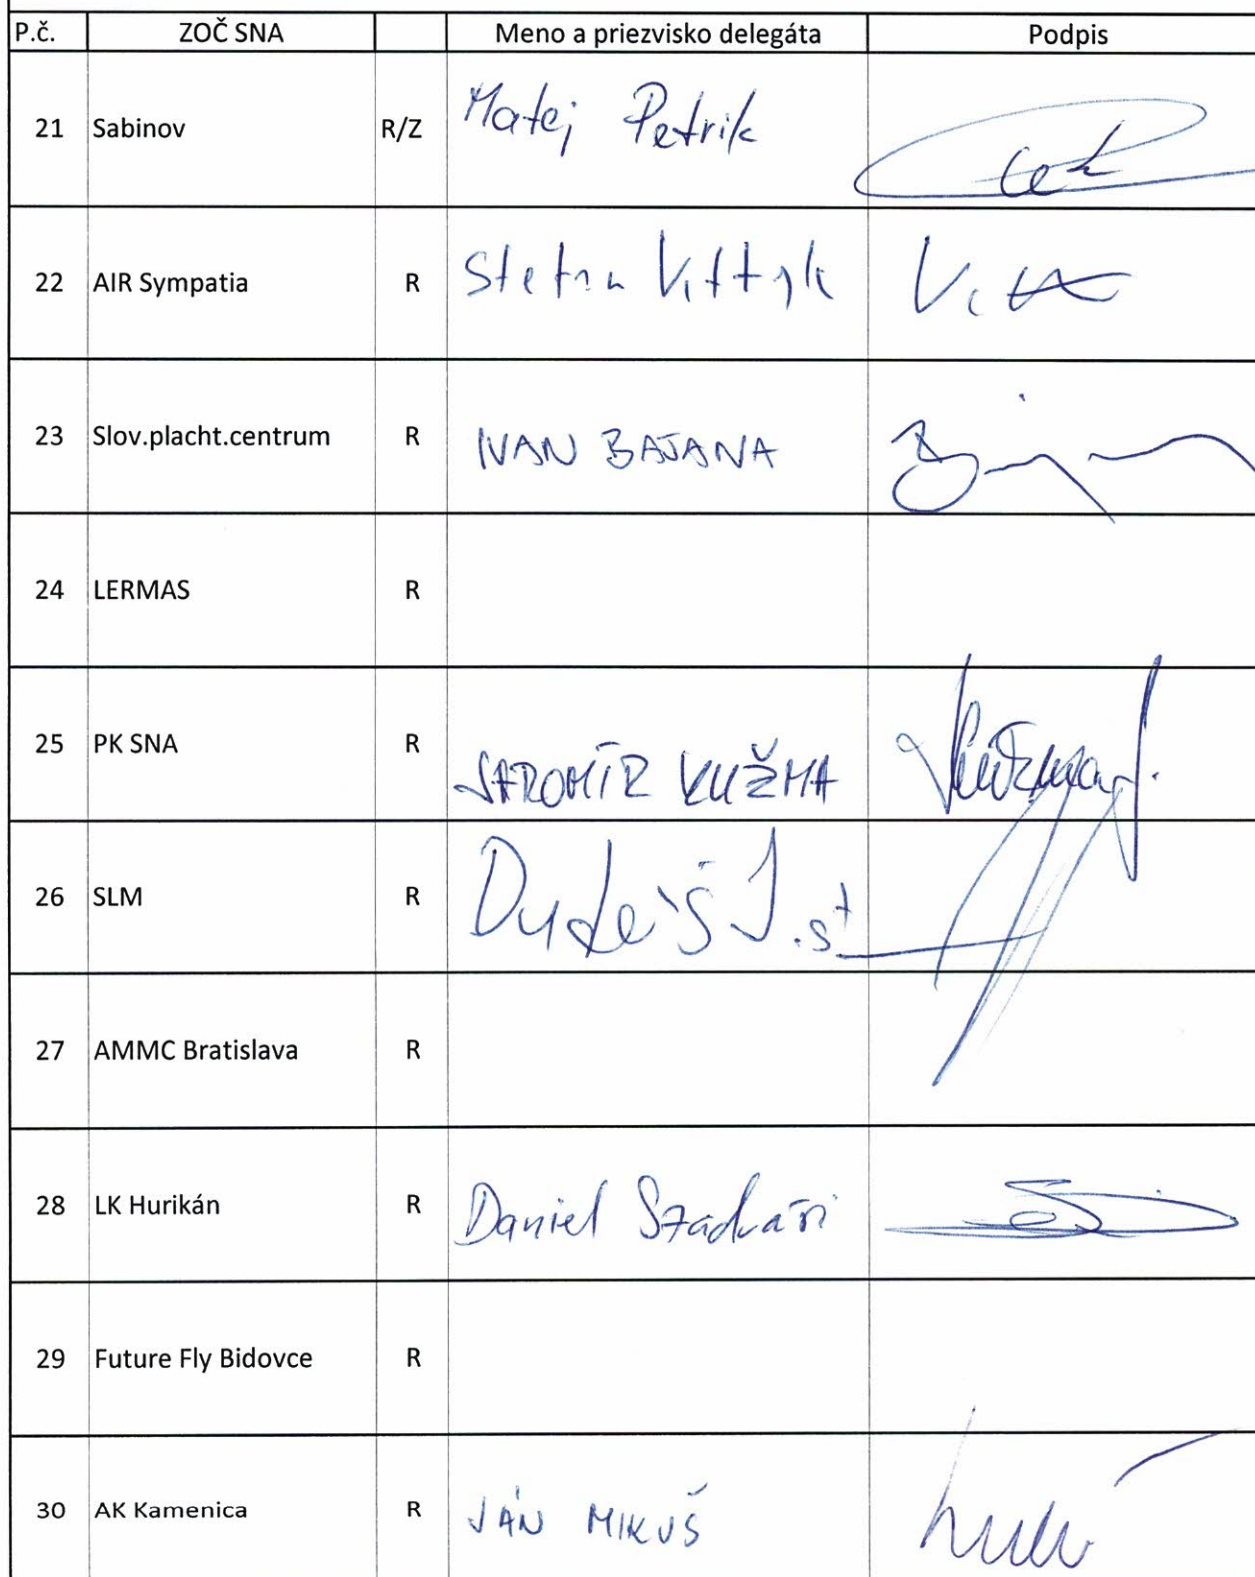 P.č. ZOČ SNA Meno a priezvisko delegáta Podpis
21 Sabinov R/Z Matej Petrik
22 AIR Sympatia R Stefan
23 Slov.placht.centrum R IVAN BAJANA
24 LERMAS R
25 PK SNA R JAROMÍR KUŽMA
26 SLM R J. st
27 AMMC Bratislava R
28 LK Hurikán R Daniel
29 Future Fly Bidovce R
30 AK Kamenica R JÁN MIKUŠ